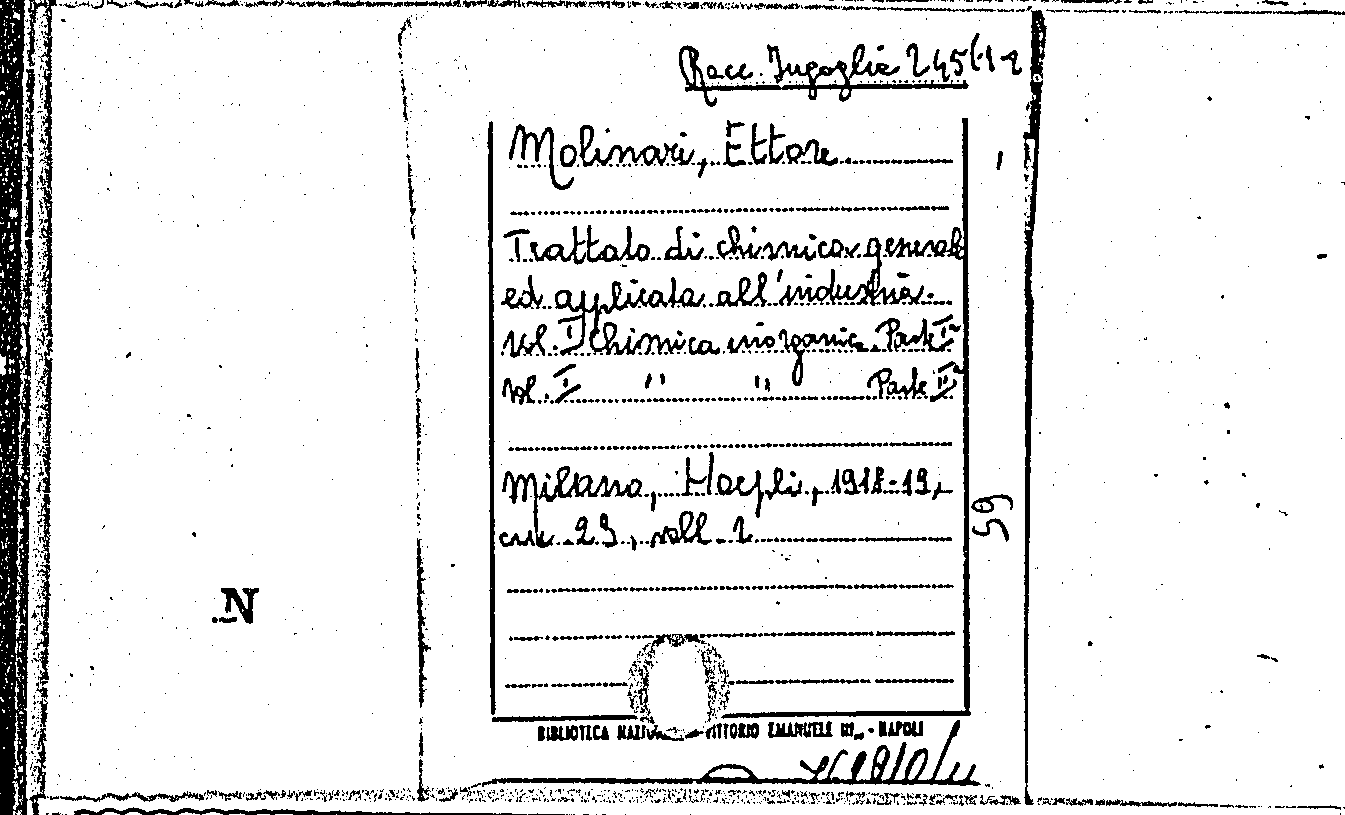 Racc. Jugoglia 245(1-2
Molinari, Ettore.
Trattato di chimica generale
ed applicata all'industria.
Vol. I Chimica inorganic. Parte Iª
Vol. I " " Parte IIª
Milano, Hoepli, 1918-19,
cm. 23, voll. 2
59
N
BIBLIOTECA VITTORIO EMANUELE III - NAPOLI